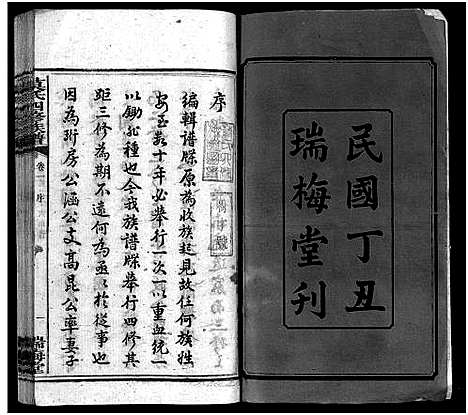 民國丁丑
瑞梅堂刊
序
編輯譜牒原為收族起見故任何族姓
每至數十年必舉行一次一以重血統一
以鋤非種也今我族譜牒舉行四修其
距三修為期不遠何為亟於從事也
因為珩房公涵公支高昆公率妻子
氏四修族譜
卷一
序
一
瑞梅堂